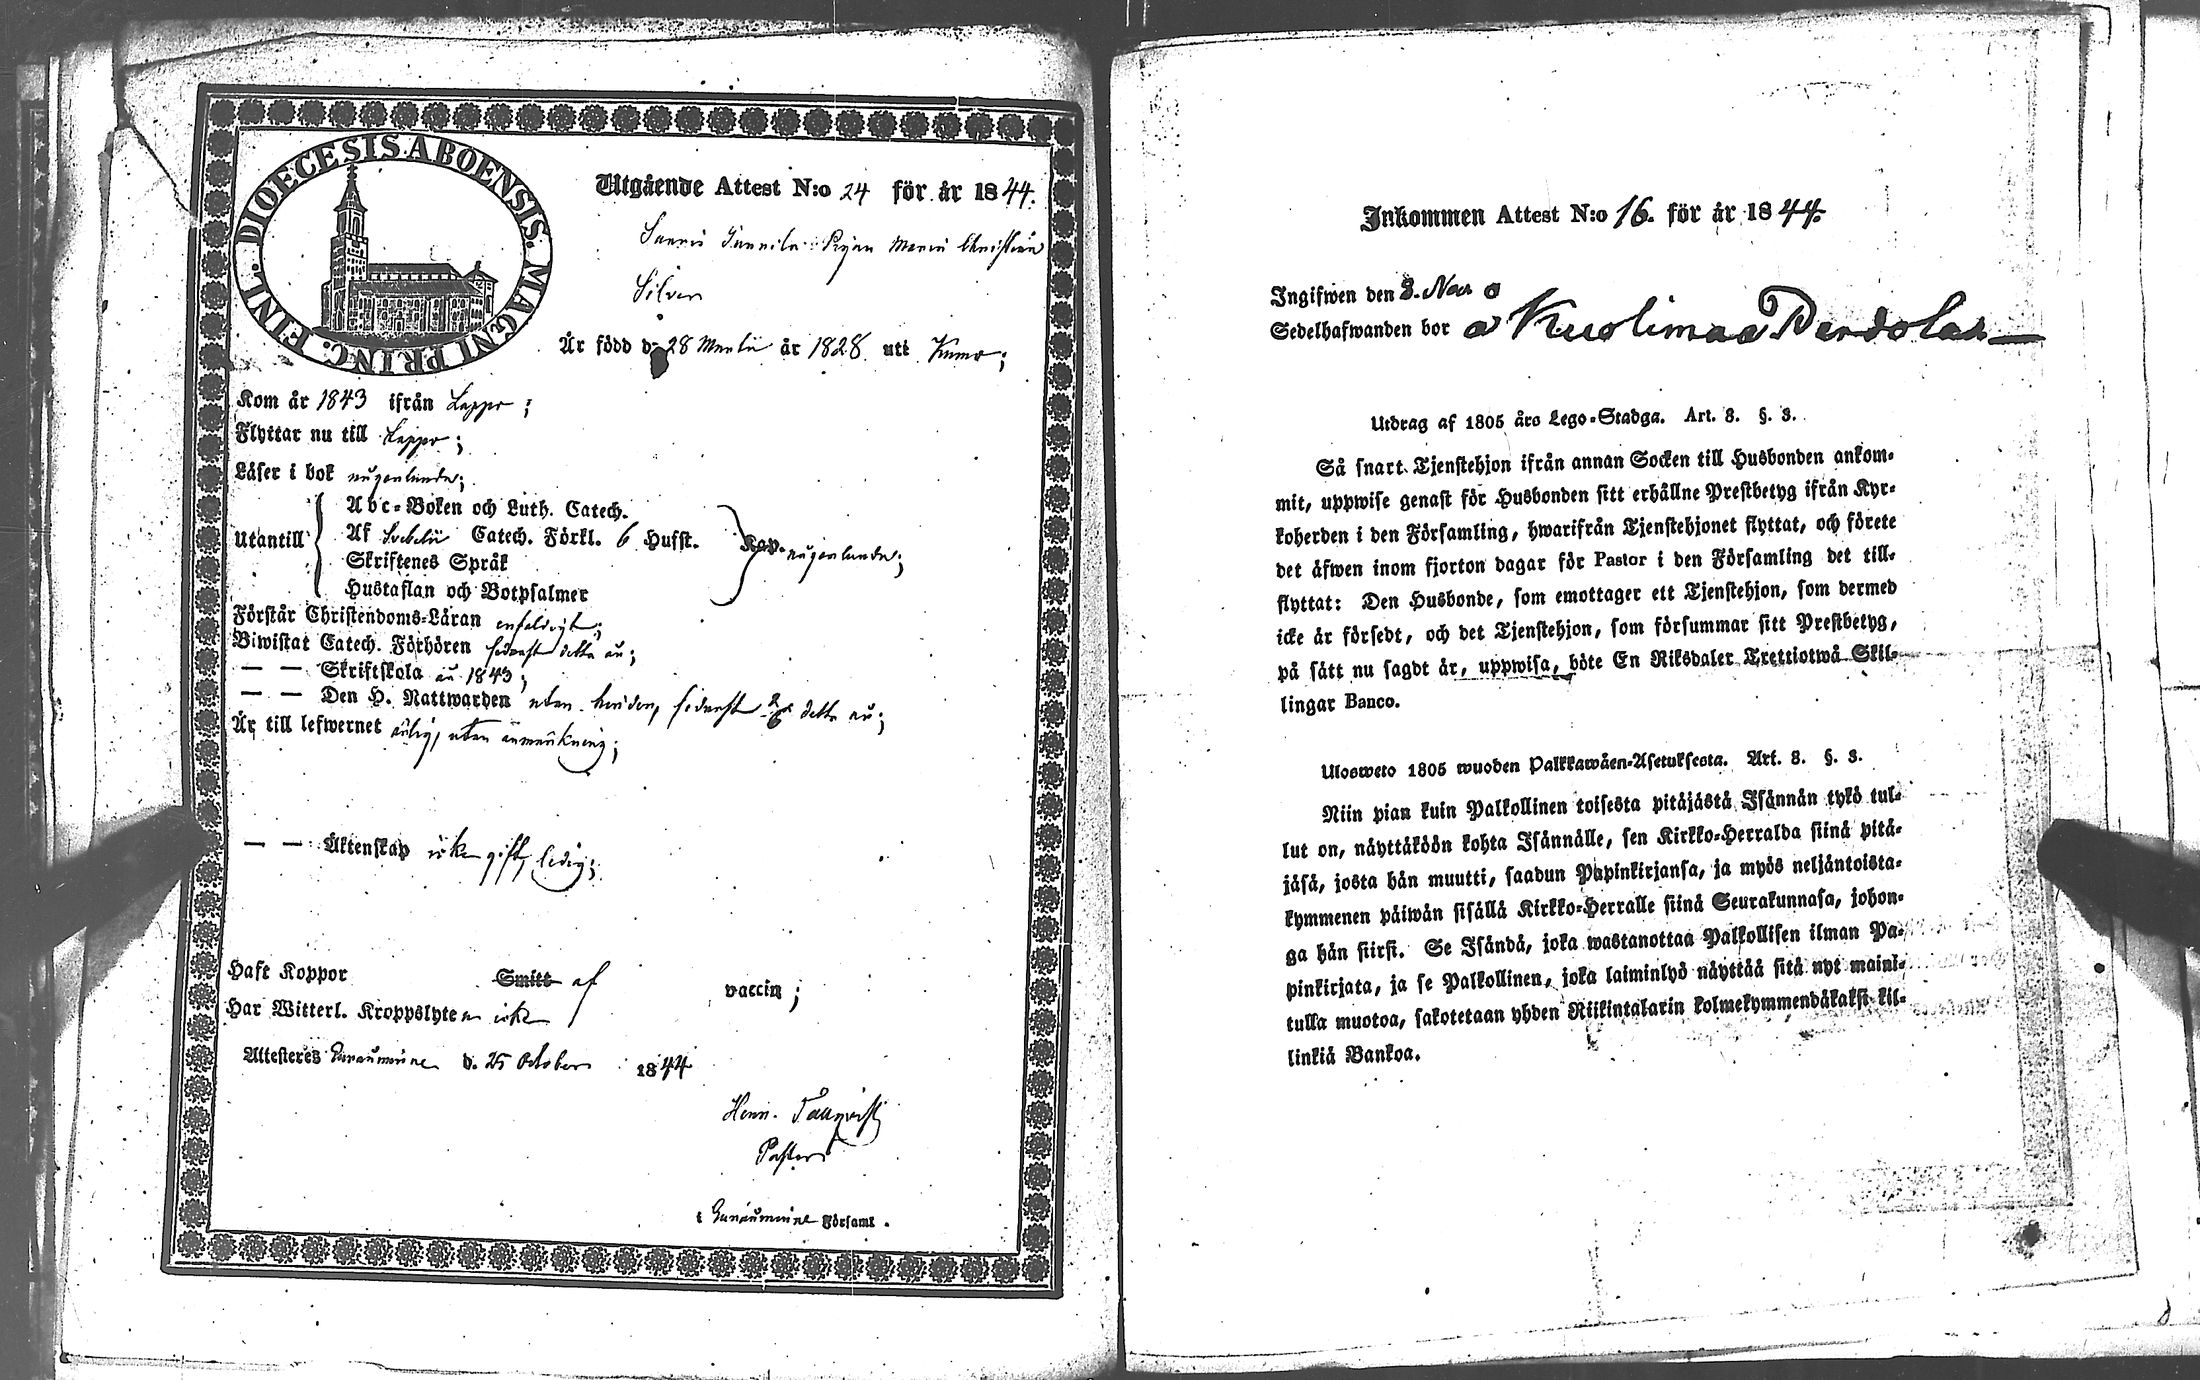 DIOECESIS ABOENSIS. MAGNI PRINC. FINL.
Utgående Attest N:o 24 för år 1844.
Pigan Maria Christina
Silver
Är född d. 28 Martii år 1828 uti Kumo;
Kom år 1843 ifrån Lappo;
Flyttar nu till Lappo;
Läser i bok någorlunda;
Utantill
Abc-Boken och Luth. Catech.
Af Svebelii Catech. Förkl. 6 Hufst.
Skriftenes Språk
Hustaflan och Botpsalmer
någorlunda;
Förstår Christendoms-Läran enfaldigt;
Biwistat Catech. Förhören sednast detta år;
— — Skriftskola år 1843;
— — Den H. Nattwarden utan hinder, sednast detta år;
Är till lefwernet ärlig, utan anmärkning;
— — Äktenskap icke gift, ledig;
Haft Koppor Smitt af vaccin;
Har Witterl. Kroppslyten icke
Attesteres Euraåminne d. 25 October 1844
Henr. Tallqvist
Pastor
i Euraåminne Församl.
Inkommen Attest N:o 16. för år 1844.
Ingifwen den 3. Nov
Sedelhafwanden bor å Kuolimaa
Utdrag af 1805 års Lego-Stadga. Art. 8. §. 3.
Så snart Tjenstehjon ifrån annan Socken till Husbonden ankom-
mit, uppwise genast för Husbonden sitt erhållne Prestbetyg ifrån Kyr-
koherden i den Församling, hwarifrån Tjenstehjonet flyttat, och förete
det äfwen inom fjorton dagar för Pastor i den Församling det till-
flyttat: Den Husbonde, som emottager ett Tjenstehjon, som dermed
icke är försedt, och det Tjenstehjon, som försummar sitt Prestbetyg,
på sätt nu sagdt är, uppwisa, böte En Riksdaler Trettiotwå Skil-
lingar Banco.
Ulosweto 1805 wuoden Palkkawäen-Asetuksesta. Art. 8. §. 3.
Niin pian kuin Palkollinen toisesta pitäjästä Isännän tykö tul-
lut on, näyttäköön kohta Isännälle, sen Kirkko-Herralda siinä pitä-
jäsä, josta hän muutti, saadun Papinkirjansa, ja myös neljäntoista-
kymmenen päiwän sisällä Kirkko-Herralle siinä Seurakunnasa, johon-
ga hän siirsi. Se Isändä, joka wastanottaa Palkollisen ilman Pa-
pinkirjata, ja se Palkollinen, joka laiminlyö näyttää sitä nyt maini-
tulla muotoa, sakotetaan yhden Riikintalarin kolmekymmendäkaksi kil-
linkiä Bankoa.